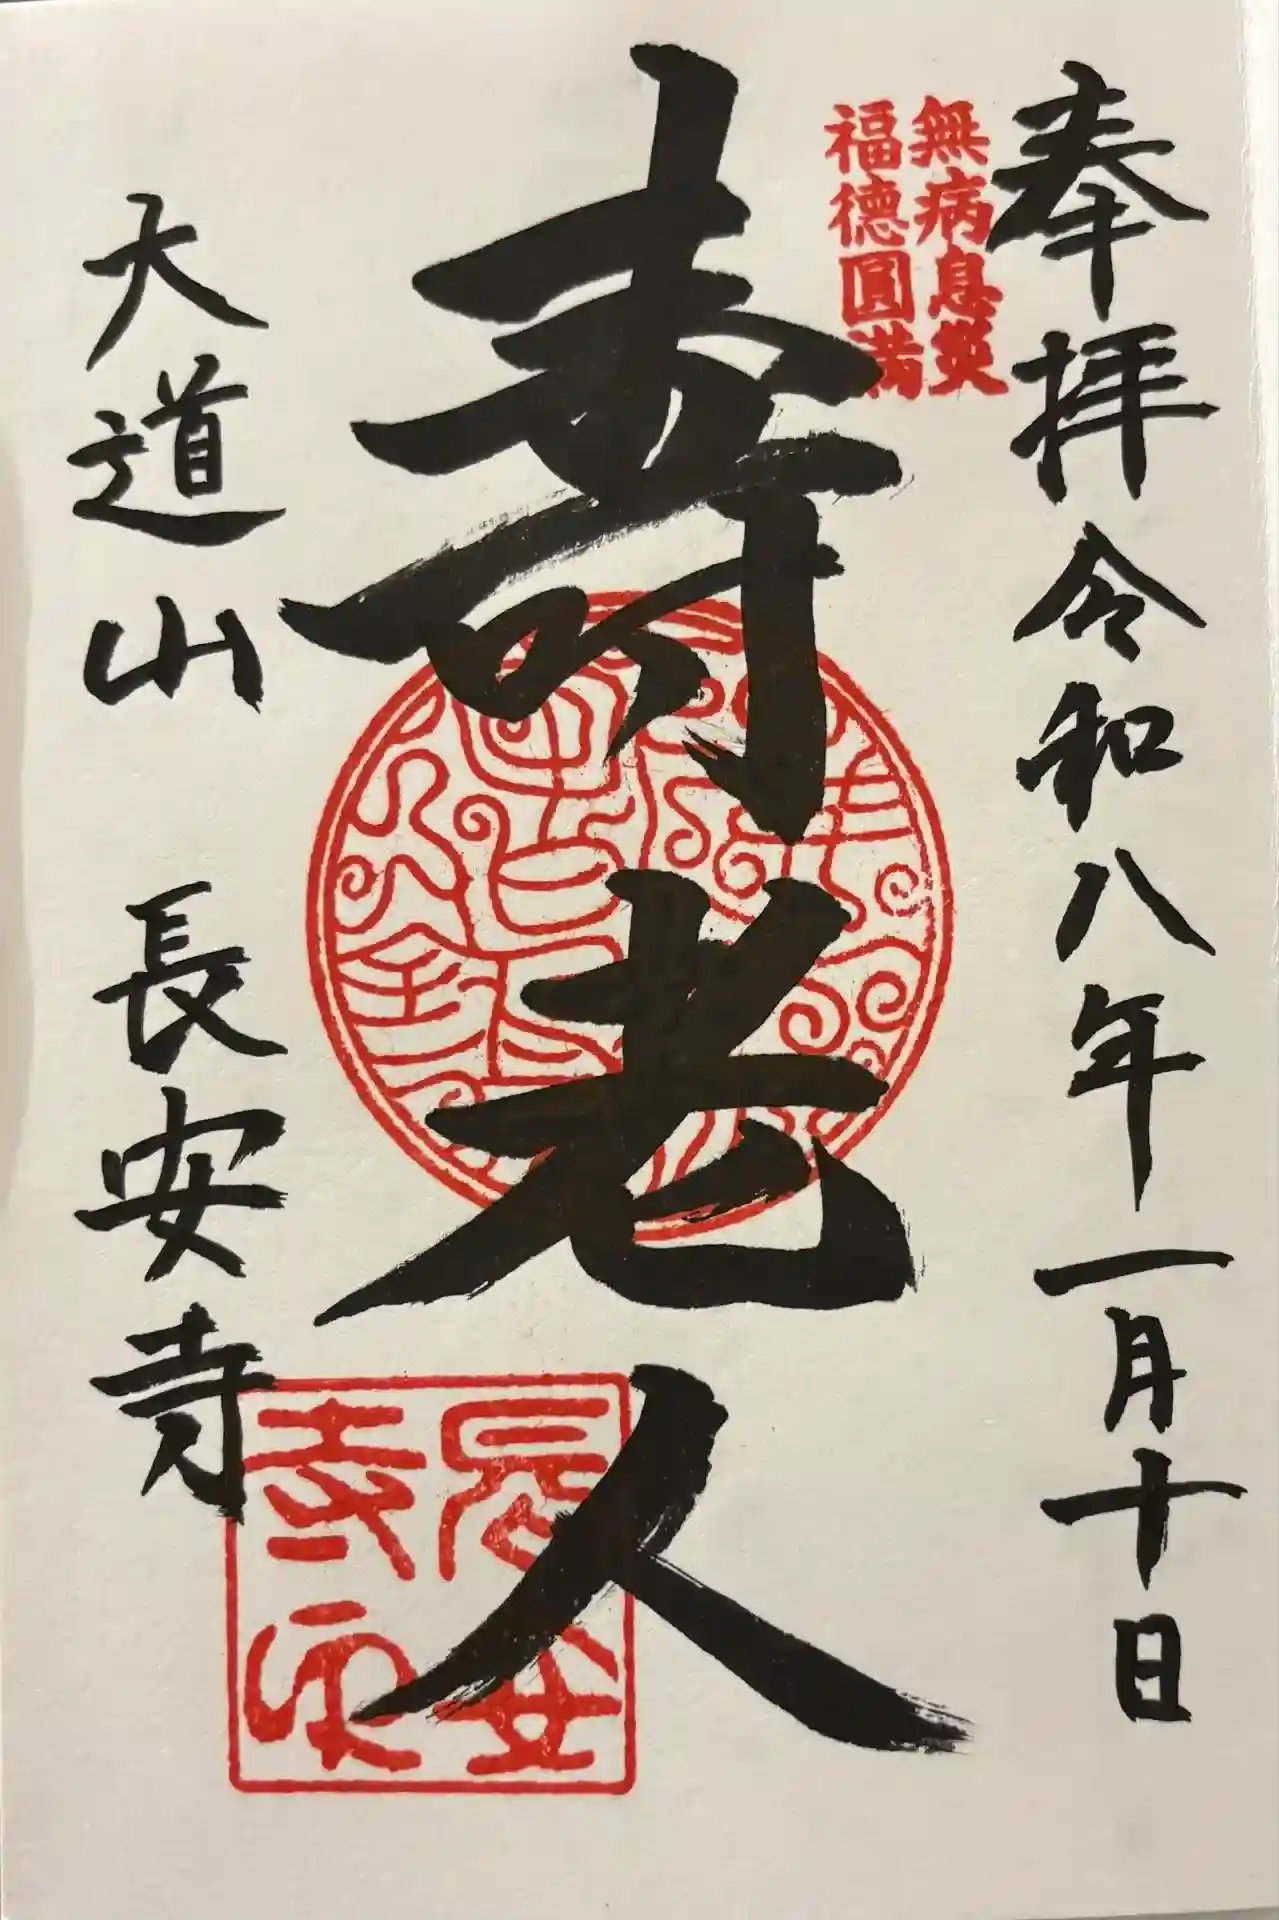 奉拝 令和八年一月十日
無病息災
福徳圓満
寿老人
大道山 長安寺